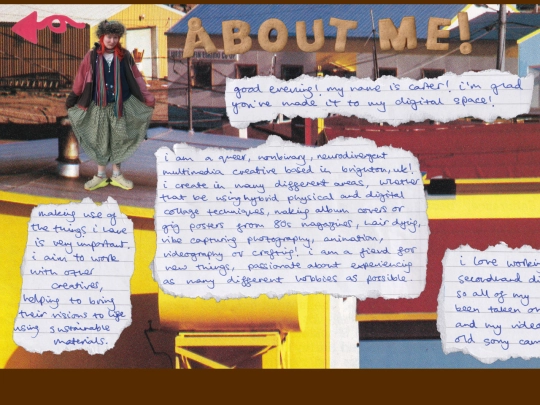 ABOUT ME!
good evening! my name is carter! i'm glad
you've made it to my digital space!
i am a queer, nonbinary, neurodivergent
multimedia creative based in brighton, uk!.
i create in many different areas, whether
that be using hybrid physical and digital
collage techniques, making album covers or
gig posters from 80s magazines, hair dying,
vibe capturing photography, animation,
videography or crafting! i am a fiend for
new things, passionate about experiencing
as many different hobbies as possible.
making use of
the things i have
is very important.
i aim to work
with other
creatives,
helping to bring
their visions to life
using sustainable
materials.
i love workin
secondhand di
so all of my
been taken o
and my video
old sony cam